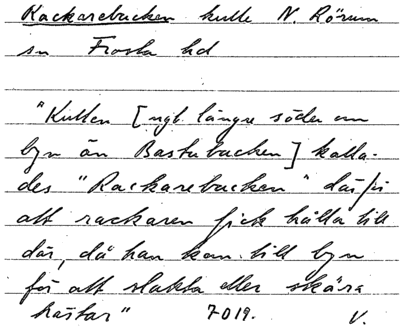 Rackarebacken kulle N. Rörum
sn Frosta hd
"Kullen [ngt längre söder om
byn än Bastubacken] kalla-
des "Rackarebacken" därför
att rackaren fick hålla till
där, då han kom till byn
för att slakta eller skära
hästar" 7019. V.